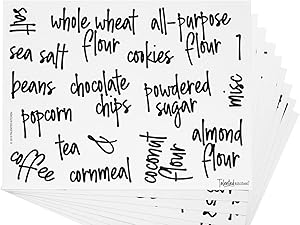 salt
whole wheat
flour
all-purpose
flour
sea salt
cookies
1
beans
chocolate
chips
powdered
sugar
misc
popcorn
tea
&
coffee
cornmeal
coconut
flour
almond
flour